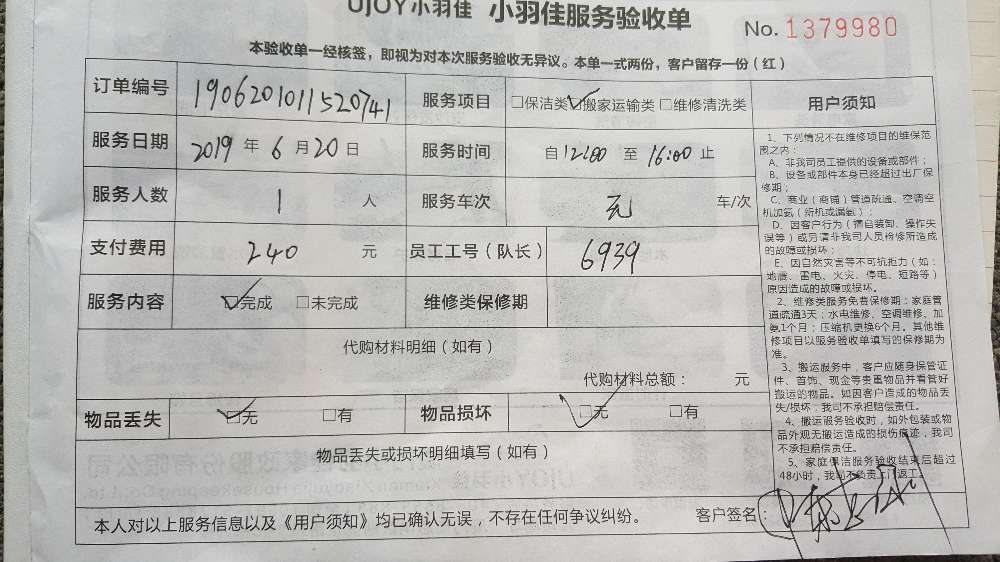 UJOY小羽佳 小羽佳服务验收单
No. 1379980
本验收单一经核签，即视为对本次服务验收无异议。本单一式两份，客户留存一份（红）
订单编号 1906201011520741 服务项目 □保洁类 ☑搬家运输类 □维修清洗类
服务日期 2019 年 6 月 20 日 服务时间 自 12:00 至 16:00 止
服务人数 1 人 服务车次 车/次
支付费用 240 元 员工工号（队长） 6939
服务内容 ☑完成 □未完成 维修类保修期
代购材料明细（如有）
代购材料总额： 元
物品丢失 ☑无 □有 物品损坏 ☑无 □有
物品丢失或损坏明细填写（如有）
本人对以上服务信息以及《用户须知》均已确认无误，不存在任何争议纠纷。 客户签名：
用户须知
1、下列情况不在维修项目的维保范
围之内：
A、非我司员工提供的设备或部件；
B、设备或部件本身已经超过出厂保
修期；
C、商业（商铺）管道疏通、空调空
机加氨（拆机或漏氨）；
D、因客户行为（擅自装卸、操作失
误等）或另请非我司人员检修所造成
的故障或损坏；
E、因自然灾害等不可抗拒力（如：
地震、雷电、火灾、停电、短路等）
原因造成的故障或损坏。
2、维修类服务免费保修期：家庭管
道疏通3天；水电维修、空调维修、加
氨1个月；压缩机更换6个月。其他维
修项目以服务验收单填写的保修期为
准。
3、搬运服务中，客户应随身保管证
件、首饰、现金等贵重物品并看管好
搬运的物品。如因客户造成的物品丢
失/损坏，我司不承担赔偿责任。
4、搬运服务验收时，如外包装或物
品外观无搬运造成的损伤痕迹，我司
不承担赔偿责任。
5、家庭保洁服务验收结束后超过
48小时，我司不负责上门返工。